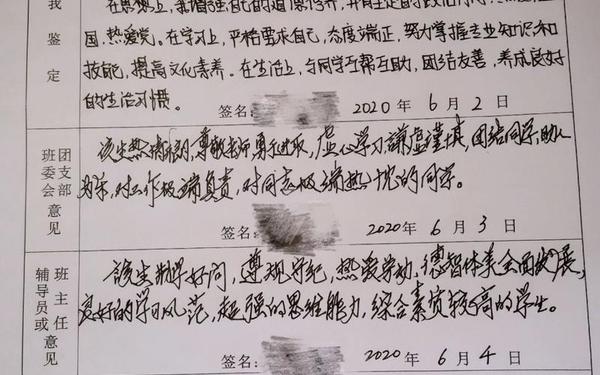 我鉴定
国、热爱党。在学习上，严格要求自己，态度端正，努力掌握专业知识和
技能，提高文化素养。在生活上，与同学互帮互助，团结友善，养成良好
的生活习惯。
签名： 2020 年 6 月 2 日
班委会 团支部 意见
该生热情 尊敬老师 勇于进取，虚心学习 谦虚谨慎，团结同学，助人
为乐，对工作极端负责，对同志极端热忱的同学。
签名： 2020 年 6 月 3 日
辅导员或 班主任 意见
该生勤学好问，遵规守纪，热爱劳动，德智体美全面发展，
良好的学习风范，超强的思维能力，综合素质较高的学生。
签名： 2020 年 6 月 4 日